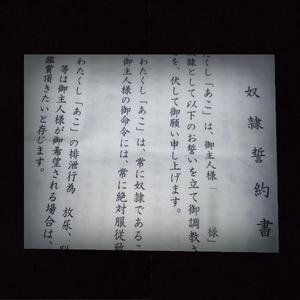 奴隷誓約書
たくし「あこ」は、御主人様「　　様」
隷として以下のお誓いを立て御調教さ
を、伏して御願い申し上げます。
わたくし「あこ」は、常に奴隷であるこ
御主人様の御命令には、常に絶対服従致
わたくし「あこ」の排泄行為　放尿、
等は御主人様が御希望される場合は、
鑑賞頂きたいと存じます。